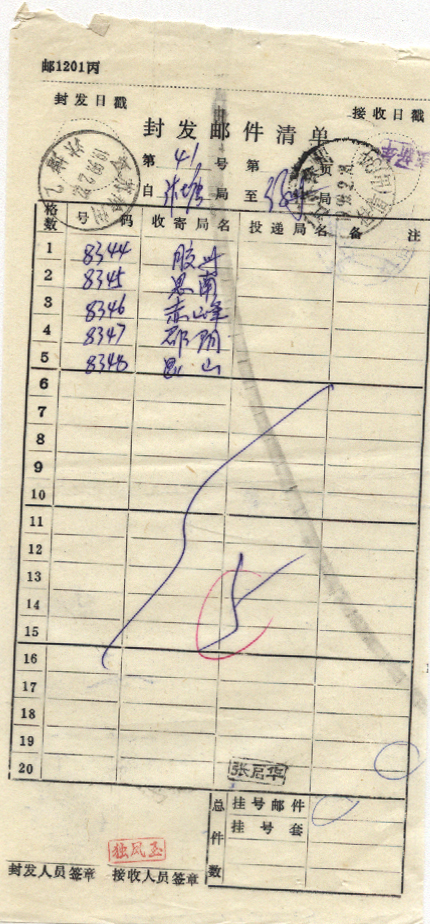 邮1201丙
封发日戳 接收日戳
封发邮件清单
第 41 号 第 页
自 局 至 局
格数 号码 收寄局名 投递局名 备注
1 8344 胶州
2 8345 思南
3 8346 赤峰
4 8347 邵阳
5 8348 山
6
7
8
9
10
11
12
13
14
15
16
17
18
19
20
张启华
总件数 挂号邮件
挂号套
封发人员签章 接收人员签章